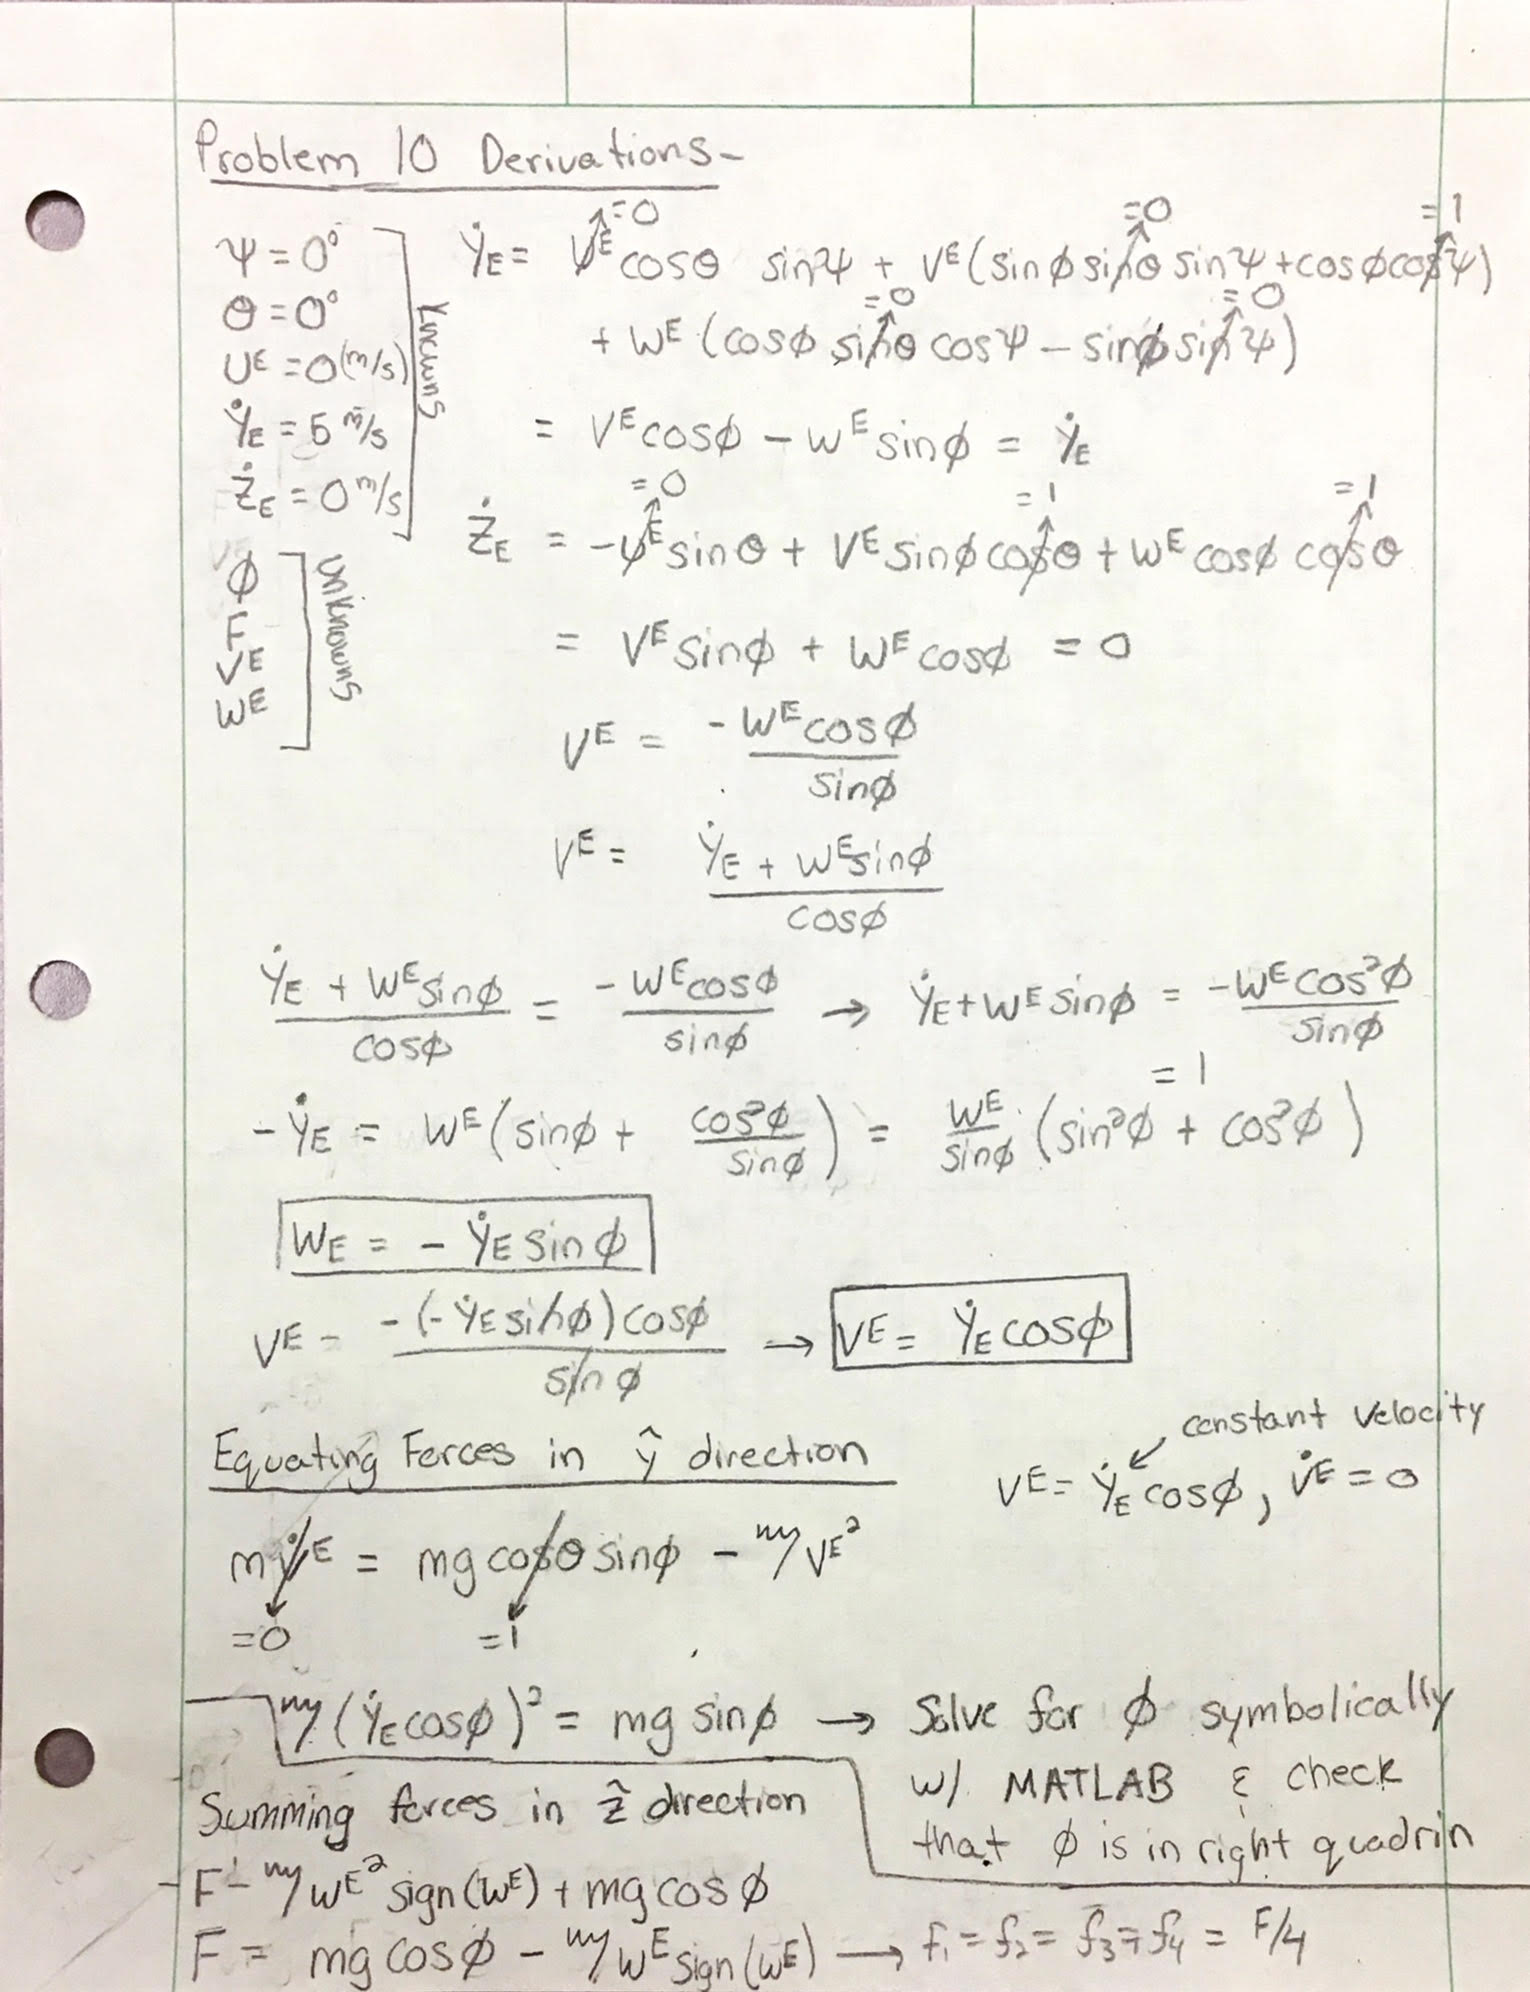 Problem 10 Derivations-
Ψ = 0°
θ = 0°
U^E = 0 (m/s)
Ẏ_E = 5 m/s
Ż_E = 0 m/s
Knowns
Φ
F
V^E
W^E
Unknowns
=0 =0 =1
Ẏ_E = U^E cosθ sinΨ + V^E (sinφ sinθ sinΨ + cosφ cosΨ)
=0 =0
+ W^E (cosφ sinθ cosΨ - sinφ sinΨ)
= V^E cosφ - W^E sinφ = Ẏ_E
=0 =1 =1
Ż_E = -U^E sinθ + V^E sinφ cosθ + W^E cosφ cosθ
= V^E sinφ + W^E cosφ = 0
V^E = -W^E cosφ / sinφ
V^E = Ẏ_E + W^E sinφ / cosφ
Ẏ_E + W^E sinφ / cosφ = -W^E cosφ / sinφ → Ẏ_E + W^E sinφ = -W^E cos²φ / sinφ
= 1
-Ẏ_E = W^E (sinφ + cos²φ / sinφ) = W^E / sinφ (sin²φ + cos²φ)
W_E = -Ẏ_E sinφ
V^E - -(-Ẏ_E sinφ) cosφ / sinφ → V^E = Ẏ_E cosφ
Equating Forces in ŷ direction
constant velocity
V^E = Ẏ_E cosφ, V̇^E = 0
m V̇^E = mg cosθ sinφ - η V^E²
=0 =1
η (Ẏ_E cosφ)² = mg sinφ → Solve for φ symbolically
w/ MATLAB & check
that φ is in right quadrin
Summing forces in ẑ direction
F - η W^E² sign(W^E) + mg cosφ
F = mg cosφ - η W^E sign(W^E) → f₁ = f₂ = f₃ = f₄ = F/4